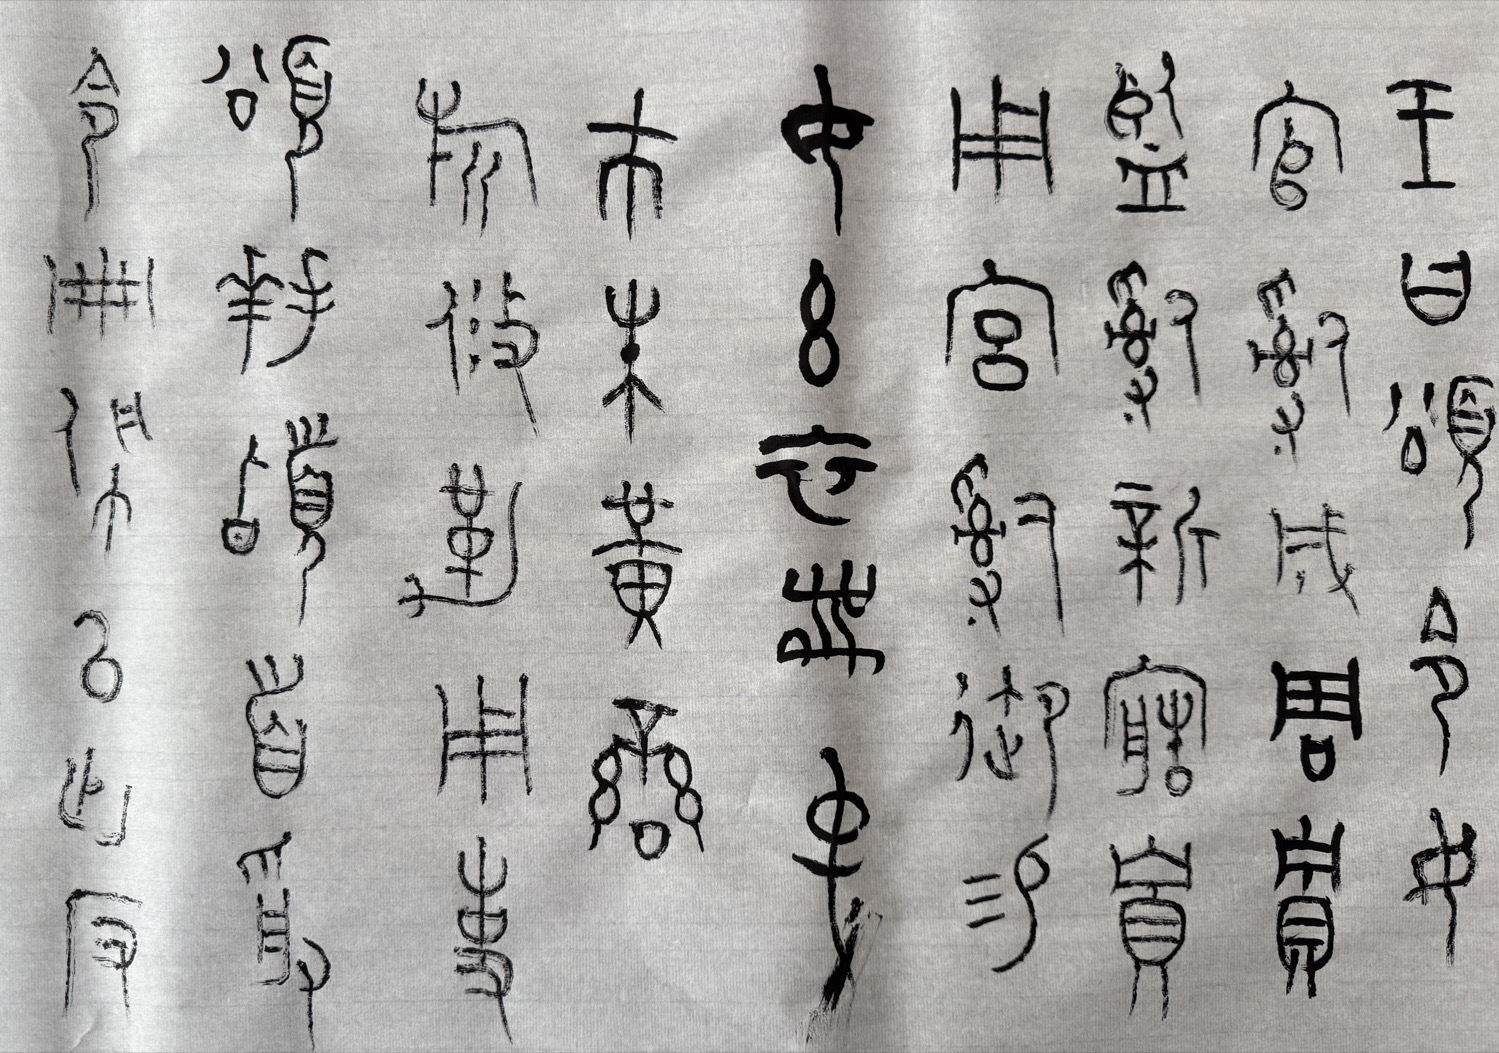 王曰頌令女
官𤔲成周貯
監𤔲新造貯
用宮𤔲御易
女玄衣黹屯
巿朱黃䜌
旂攸勒用事
頌拜𩒨首受
令冊佩以出反